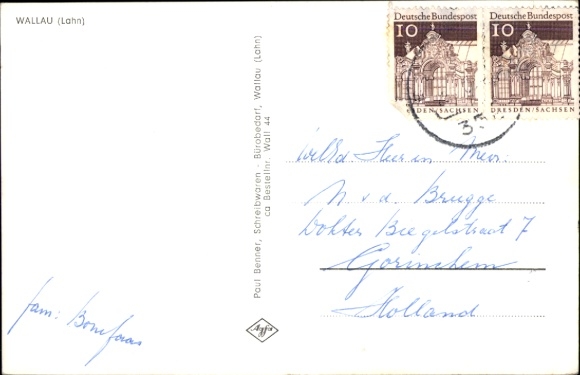 WALLAU (Lahn)
Deutsche Bundespost
10
DRESDEN/SACHSEN
Deutsche Bundespost
10
DRESDEN/SACHSEN
35
Paul Benner, Schreibwaren - Bürobedarf, Wallau (Lahn)
ca Bestellnr. Wall 44
Agfa
Fam: Bonefaas
WelEd Heer en Mevr:
N v. d. Brugge
Dokter Biegelstraat 7
Gorinchem
Holland